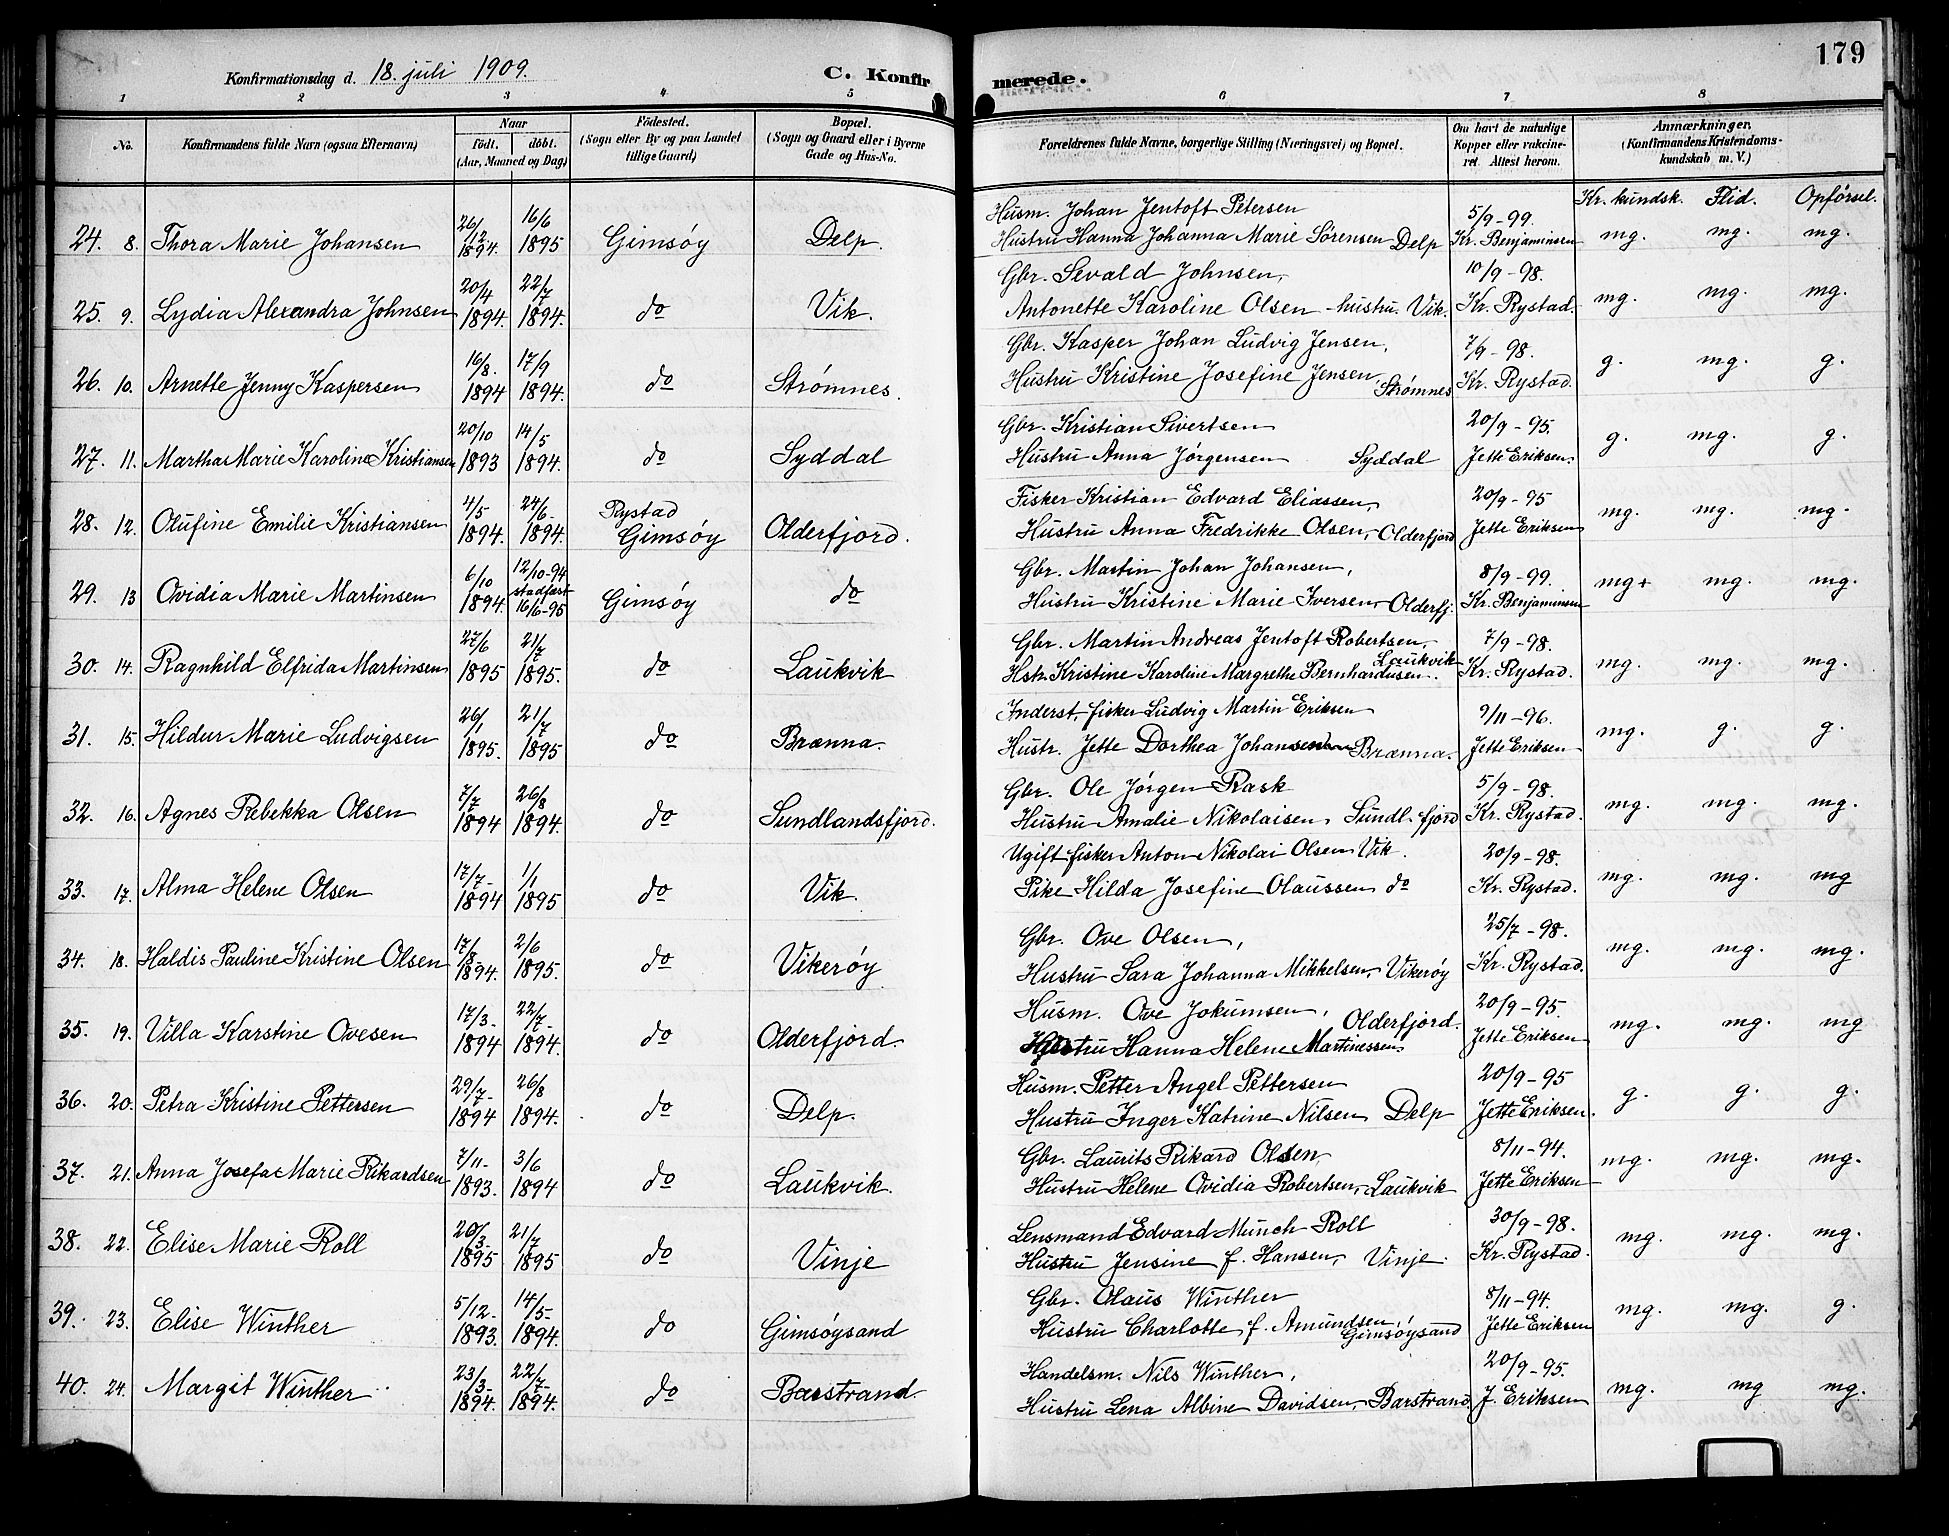 179
Konfirmationsdag d. 18. juli 1909.
C. Konfirmerede.
1 2 3 4 5 6 7 8
No. Konfirmandens fulde Navn (ogsaa Efternavn) Naar født. døbt. (Aar, Maaned og Dag) Fødested. (Sogn eller By og paa Landet tillige Gaard) Bopæl. (Sogn og Gaard eller i Byerne Gade og Hus-No. Forældrenes fulde Navne, borgerlige Stilling (Næringsvei) og Bopæl. Om havt de naturlige Kopper eller vakcineret. Attest herom. Anmærkninger. (Konfirmandens Kristendomskundskab m. V.)
Kr. kundsk. Flid. Opførsel.
24. 8. Thora Marie Johansen 26/12 1894. 16/6 1895 Gimsöy Delp. Husm. Johan Jentoft Petersen 5/9-99.
Hustru Hanna Johanna Marie Sørensen Delp Kr. Benjaminsen mg. mg. mg.
25. 9. Lydia Alexandra Johnsen 20/4 1894. 22/7 1894. do Vik. Gbr. Sevald Johnsen, 10/9-98.
Antonette Karoline Olsen - hustru. Vik. Kr. Rystad. mg. mg. mg.
26. 10. Arnette Jenny Kaspersen 16/8. 1894 17/9 1894. do Strømnes. Gbr. Kasper Johan Ludvig Jensen, 7/9-98.
Hustru Kristine Josefine Jensen Strømnes Kr. Rystad. g. mg. g.
27. 11. Martha Marie Karoline Kristiansen 20/10 1893 14/5 1894. do Syddal Gbr. Kristian Sivertsen 20/9-95.
Hustru Anna Jørgensen Syddal Jette Eriksen. g. mg. g.
28. 12. Olufine Emilie Kristiansen 4/5 1894. 24/6 1894. Rystad Gimsöy Olderfjord. Fisker Kristian Edvard Eliassen, 20/9-95
Hustru Anna Fredrikke Olsen, Olderfjord Jette Eriksen mg. mg. mg.
29. 13 Ovidia Marie Martinsen 6/10 1894. 12/10-94 stadfæst 16/6-95 Gimsöy do Gbr. Martin Johan Johansen, 8/9-99.
Hustru Kristine Marie Iversen, Olderfj. Kr. Benjaminsen mg+ mg. mg.
30. 14. Ragnhild Elfrida Martinsen 27/6 1895 21/7 1895. do Laukvik Gbr. Martin Andreas Jentoft Robertsen, 7/9-98.
Hstr. Kristine Karoline Margrethe Bernhardusen. Laukvik Kr. Rystad. mg. mg. mg.
31. 15. Hildur Marie Ludvigsen 26/1 1895. 21/7 1895 do Brænna. Inderst, fisker Ludvig Martin Eriksen 9/11-96.
Hustr. Jette Dorthea Johansen Brænna. Jette Eriksen mg. g. g.
32. 16. Agnes Rebekka Olsen 7/7 1894 26/8 1894. do Sundlandsfjord. Gbr. Ole Jørgen Rask 5/9-98.
Hustru Amalie Nikolaisen, Sundl.fjord Kr. Rystad. mg. mg. mg.
33. 17. Alma Helene Olsen 17/7- 1894 1/1 1895 do Vik. Ugift fisker Anton Nikolai Olsen Vik. 20/9-98.
Pike Hilda Josefine Olaussen do Kr. Rystad. mg. mg. mg
34. 18. Haldis Pauline Kristine Olsen 17/8- 1894. 2/6 1895. do Vikerøy Gbr. Ove Olsen, 25/7-98.
Hustru Sara Johanna Mikkelsen, Vikerøy Kr. Rystad. mg. mg. mg.
35. 19. Villa Karstine Ovesen 17/3- 1894 22/7- 1894. do Olderfjord. Husm. Ove Jokumsen, Olderfjord. 20/9-95.
Hustru Hanna Helene Martinessen Jette Eriksen mg. mg. mg
36. 20. Petra Kristine Pettersen 29/7- 1894 26/8 1894. do Delp. Husm. Petter Angel Pettersen 20/9-95
Hustru Inger Katrine Nilsen Delp Jette Eriksen. g. g. g.
37. 21. Anna Josefa Marie Rikardsen 7/11- 1893. 3/6 1894 do Laukvik. Gbr. Laurits Rikard Olsen, 8/11-94.
Hustru Helene Ovidia Robertsen, Laukvik Jette Eriksen mg. mg. mg.
38. 22. Elise Marie Roll 20/3- 1895 21/7 1895 do Vinje Lensmand Edvard Munch Roll 30/9-98.
Hustru Jensine f. Hansen, Vinje. Kr. Rystad. mg. mg. mg.
39. 23. Elise Winther 5/12- 1893. 14/5- 1894. do Gimsøysand Gbr. Olaus Winther 8/11-94.
Hustru Charlotte f. Amundsen, Gimsøysand Jette Eriksen mg. mg. g.
40. 24. Margit Winther 23/3- 1894. 22/7- 1894. do Barstrand. Handelsm. Nils Winther, 20/9-95.
Hustru Lena Albine Davidsen, Barstrand. J. Eriksen mg. mg mg.